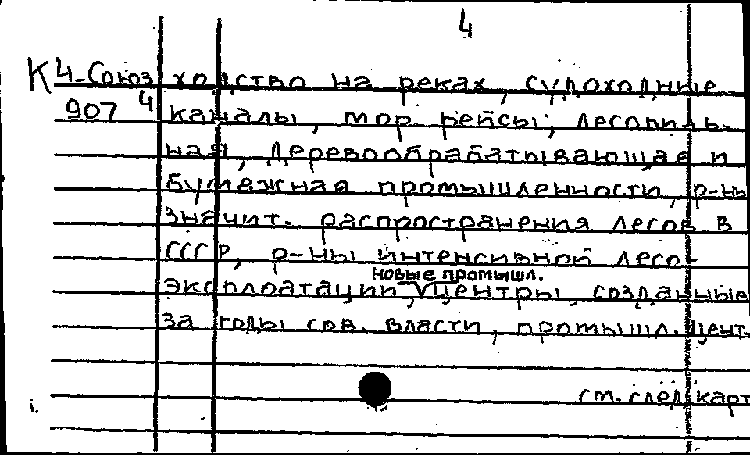 4
К4-Союз ходство на реках, судоходные
907 4 каналы, мор. рейсы, лесопиль-
ная, деревообрабатывающая и
бумажная промышленности, р-ны
значит. распространения лесов в
СССР, р-ны интенсивной лесо-
новые промышл.
эксплоатации, V центры, созданные
за годы сов. власти, промышл. цент.
см. след. карт